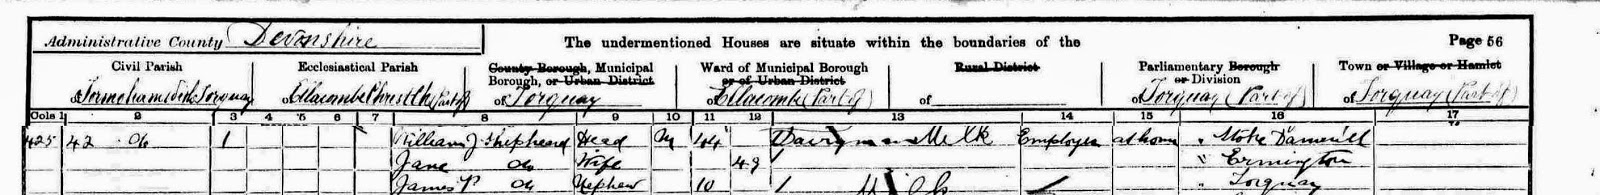 Administrative County Devonshire
The undermentioned Houses are situate within the boundaries of the
Page 56
Civil Parish
Ecclesiastical Parish
County Borough, Municipal Borough, or Urban District
Ward of Municipal Borough or of Urban District
Rural District
Parliamentary Borough or Division
Town or Village or Hamlet
of Tormoham Torquay
of Ellacombe Christ Ch (Part of)
of Torquay
of Ellacombe (Part of)
of
of Torquay (Part of)
of Torquay (Part of)
Cols 1 2 3 4 5 6 7 8 9 10 11 12 13 14 15 16 17
425 42 do 1 William J Shepheard Head M 44 Dairyman Milk Employer at home " Stoke Damerell
Jane do Wife 49 " Ermington
James P do Nephew 10 " Torquay